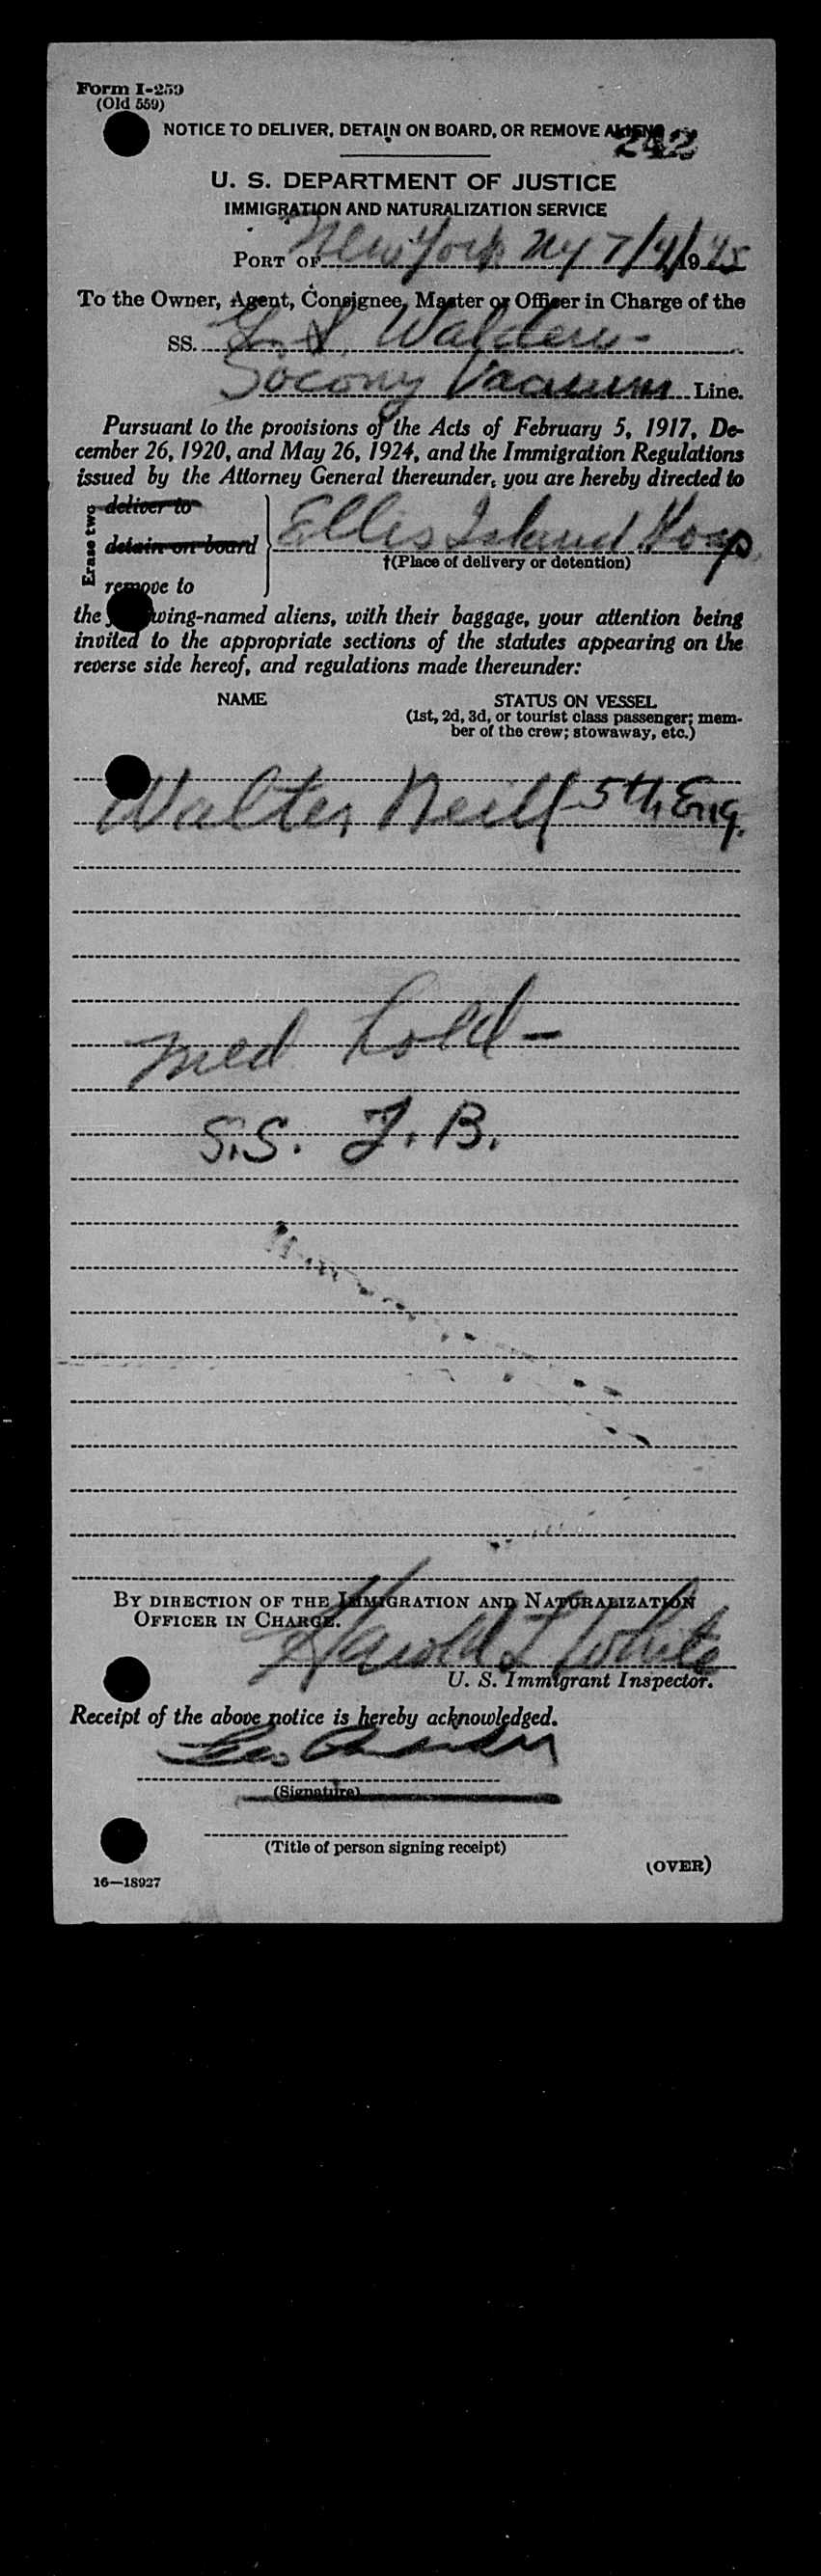 Form I-259
(Old 559)
NOTICE TO DELIVER, DETAIN ON BOARD, OR REMOVE ALIENS
242
U. S. DEPARTMENT OF JUSTICE
IMMIGRATION AND NATURALIZATION SERVICE
PORT OF New York NY 7/4/1945
To the Owner, Agent, Consignee, Master or Officer in Charge of the
SS. G. S. Walden -
Socony Vacuum Line.
Pursuant to the provisions of the Acts of February 5, 1917, De-
cember 26, 1920, and May 26, 1924, and the Immigration Regulations
issued by the Attorney General thereunder, you are hereby directed to
Erase two
deliver to
detain on board Ellis Island Hosp.
†(Place of delivery or detention)
remove to
the following-named aliens, with their baggage, your attention being
invited to the appropriate sections of the statutes appearing on the
reverse side hereof, and regulations made thereunder:
NAME STATUS ON VESSEL
(1st, 2d, 3d, or tourist class passenger; mem-
ber of the crew; stowaway, etc.)
Walter Neill 5th Eng.
Med hold -
S.S. T.B.
BY DIRECTION OF THE IMMIGRATION AND NATURALIZATION
OFFICER IN CHARGE.
Harold L White
U. S. Immigrant Inspector.
Receipt of the above notice is hereby acknowledged.
(Signature)
(Title of person signing receipt)
(OVER)
16—18927